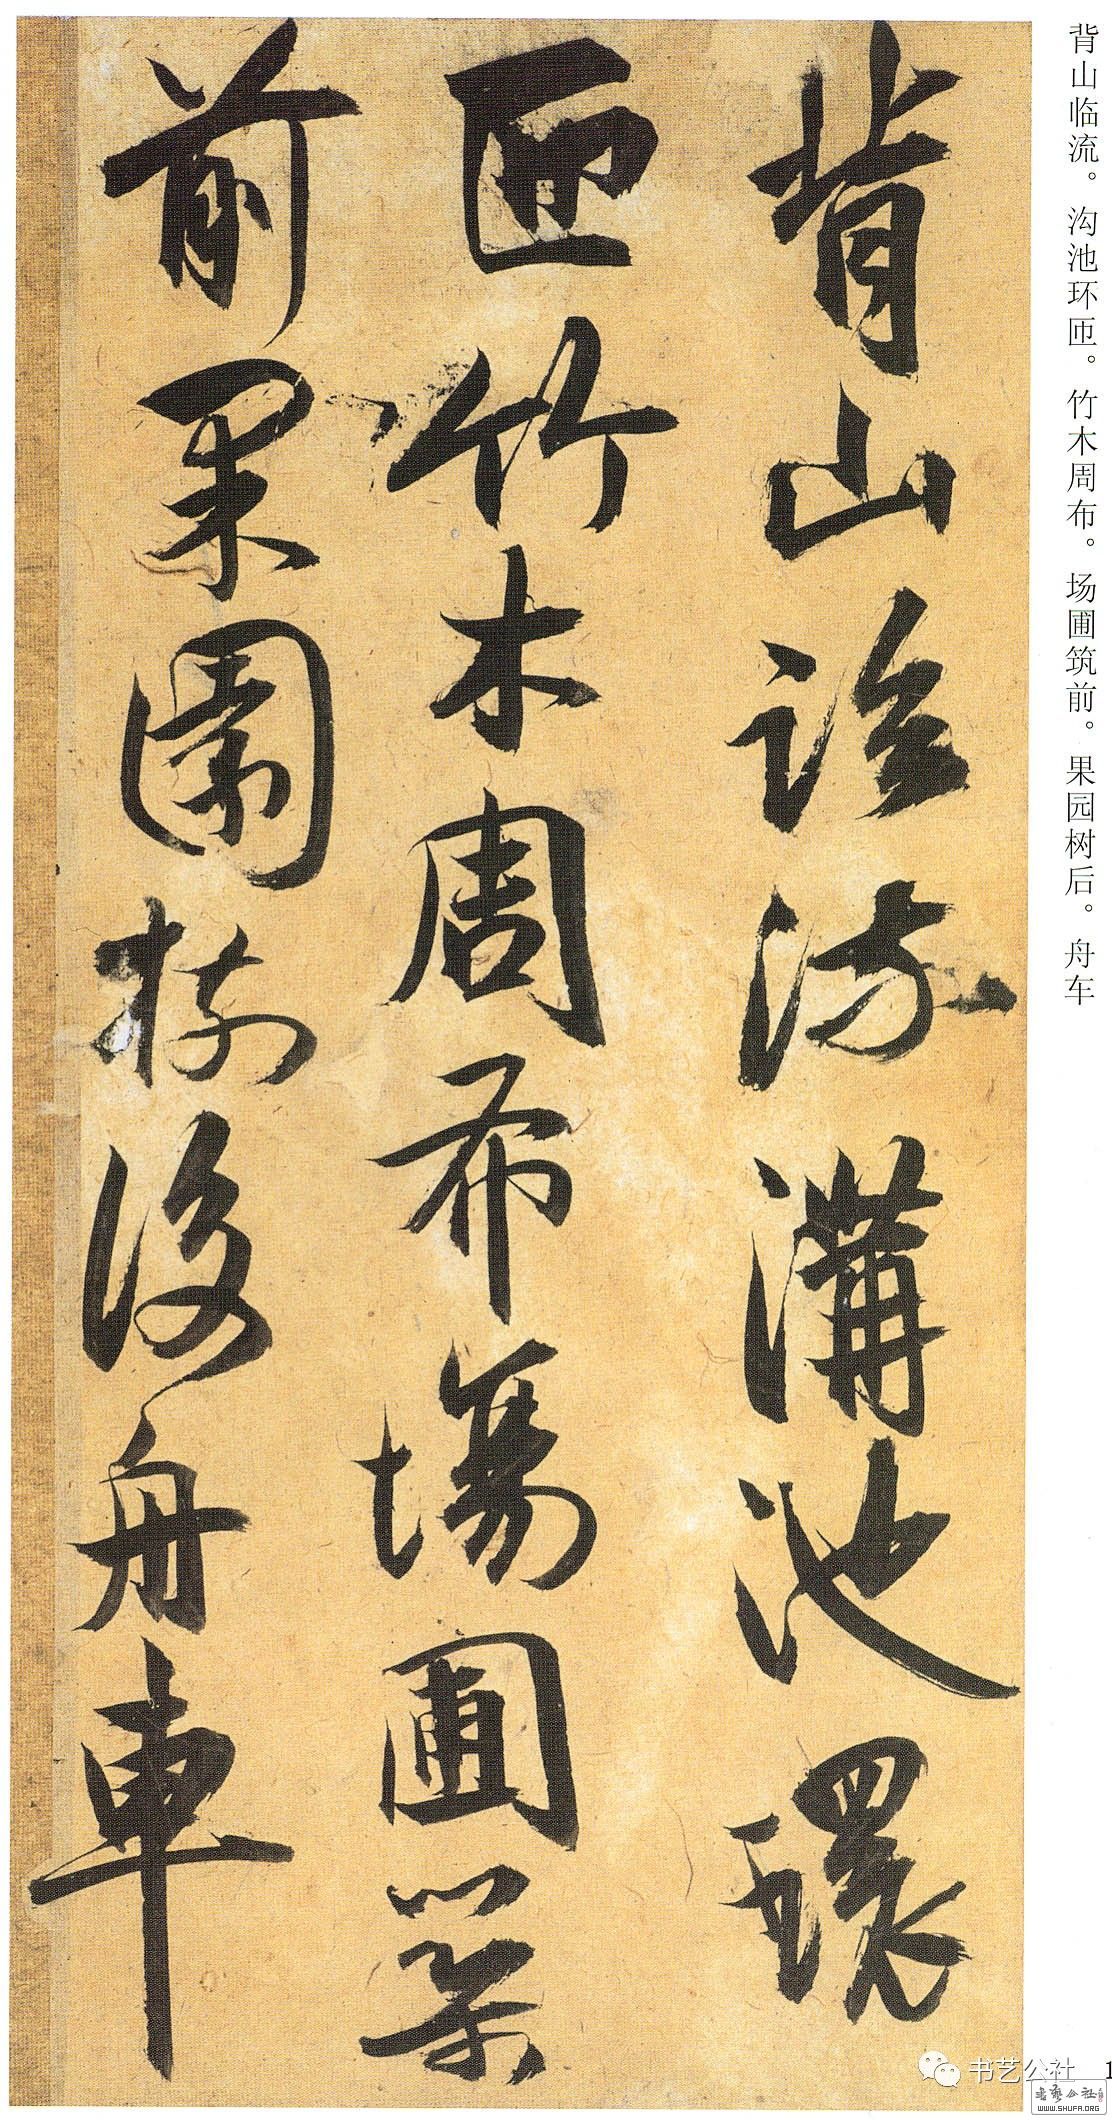 背山临流。沟池环匝。竹木周布。场圃筑前。果园树后。舟车
背山臨流溝池環
匝竹木周布場圃築
前果園樹後舟車
书艺公社
1
书艺公社
WWW.SHUFA.ORG